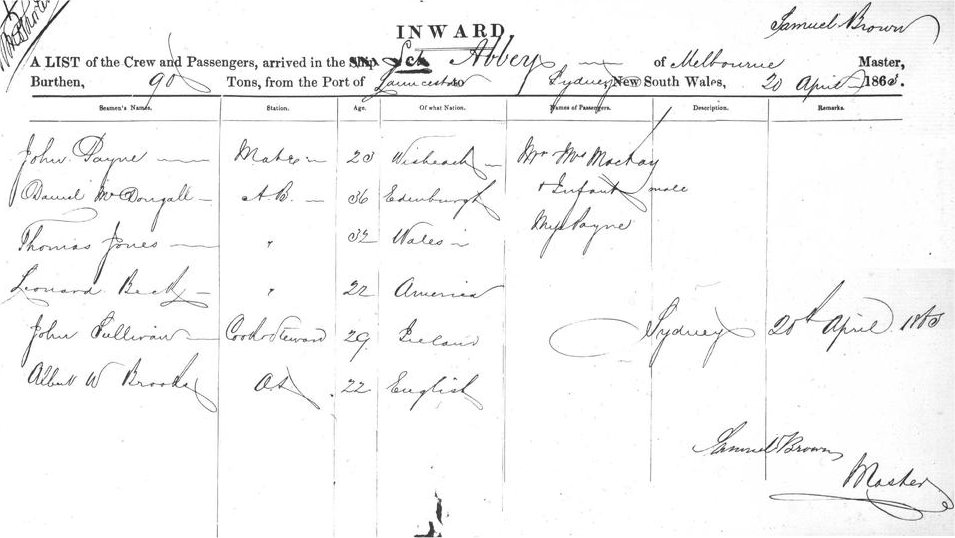 Samuel Brown
INWARD
A LIST of the Crew and Passengers, arrived in the Ship Sch Abbey of Melbourne Master,
Burthen, 90 Tons, from the Port of Launceston to Sydney New South Wales, 20 April 1863.
Seamen's Names. Station. Age. Of what Nation. Names of Passengers. Description. Remarks.
John Payne Mate 23 Wisbeach Mr Mrs Mackay
Daniel McDougall A.B. 36 Edinburgh + Infant male
Thomas Jones " 32 Wales Payne
Leonard Beck " 22 America
John Sullivan Cook & Steward 29 Ireland Sydney 20th April 1863
Albert W Brooks 22 English
Samuel Brown
Master